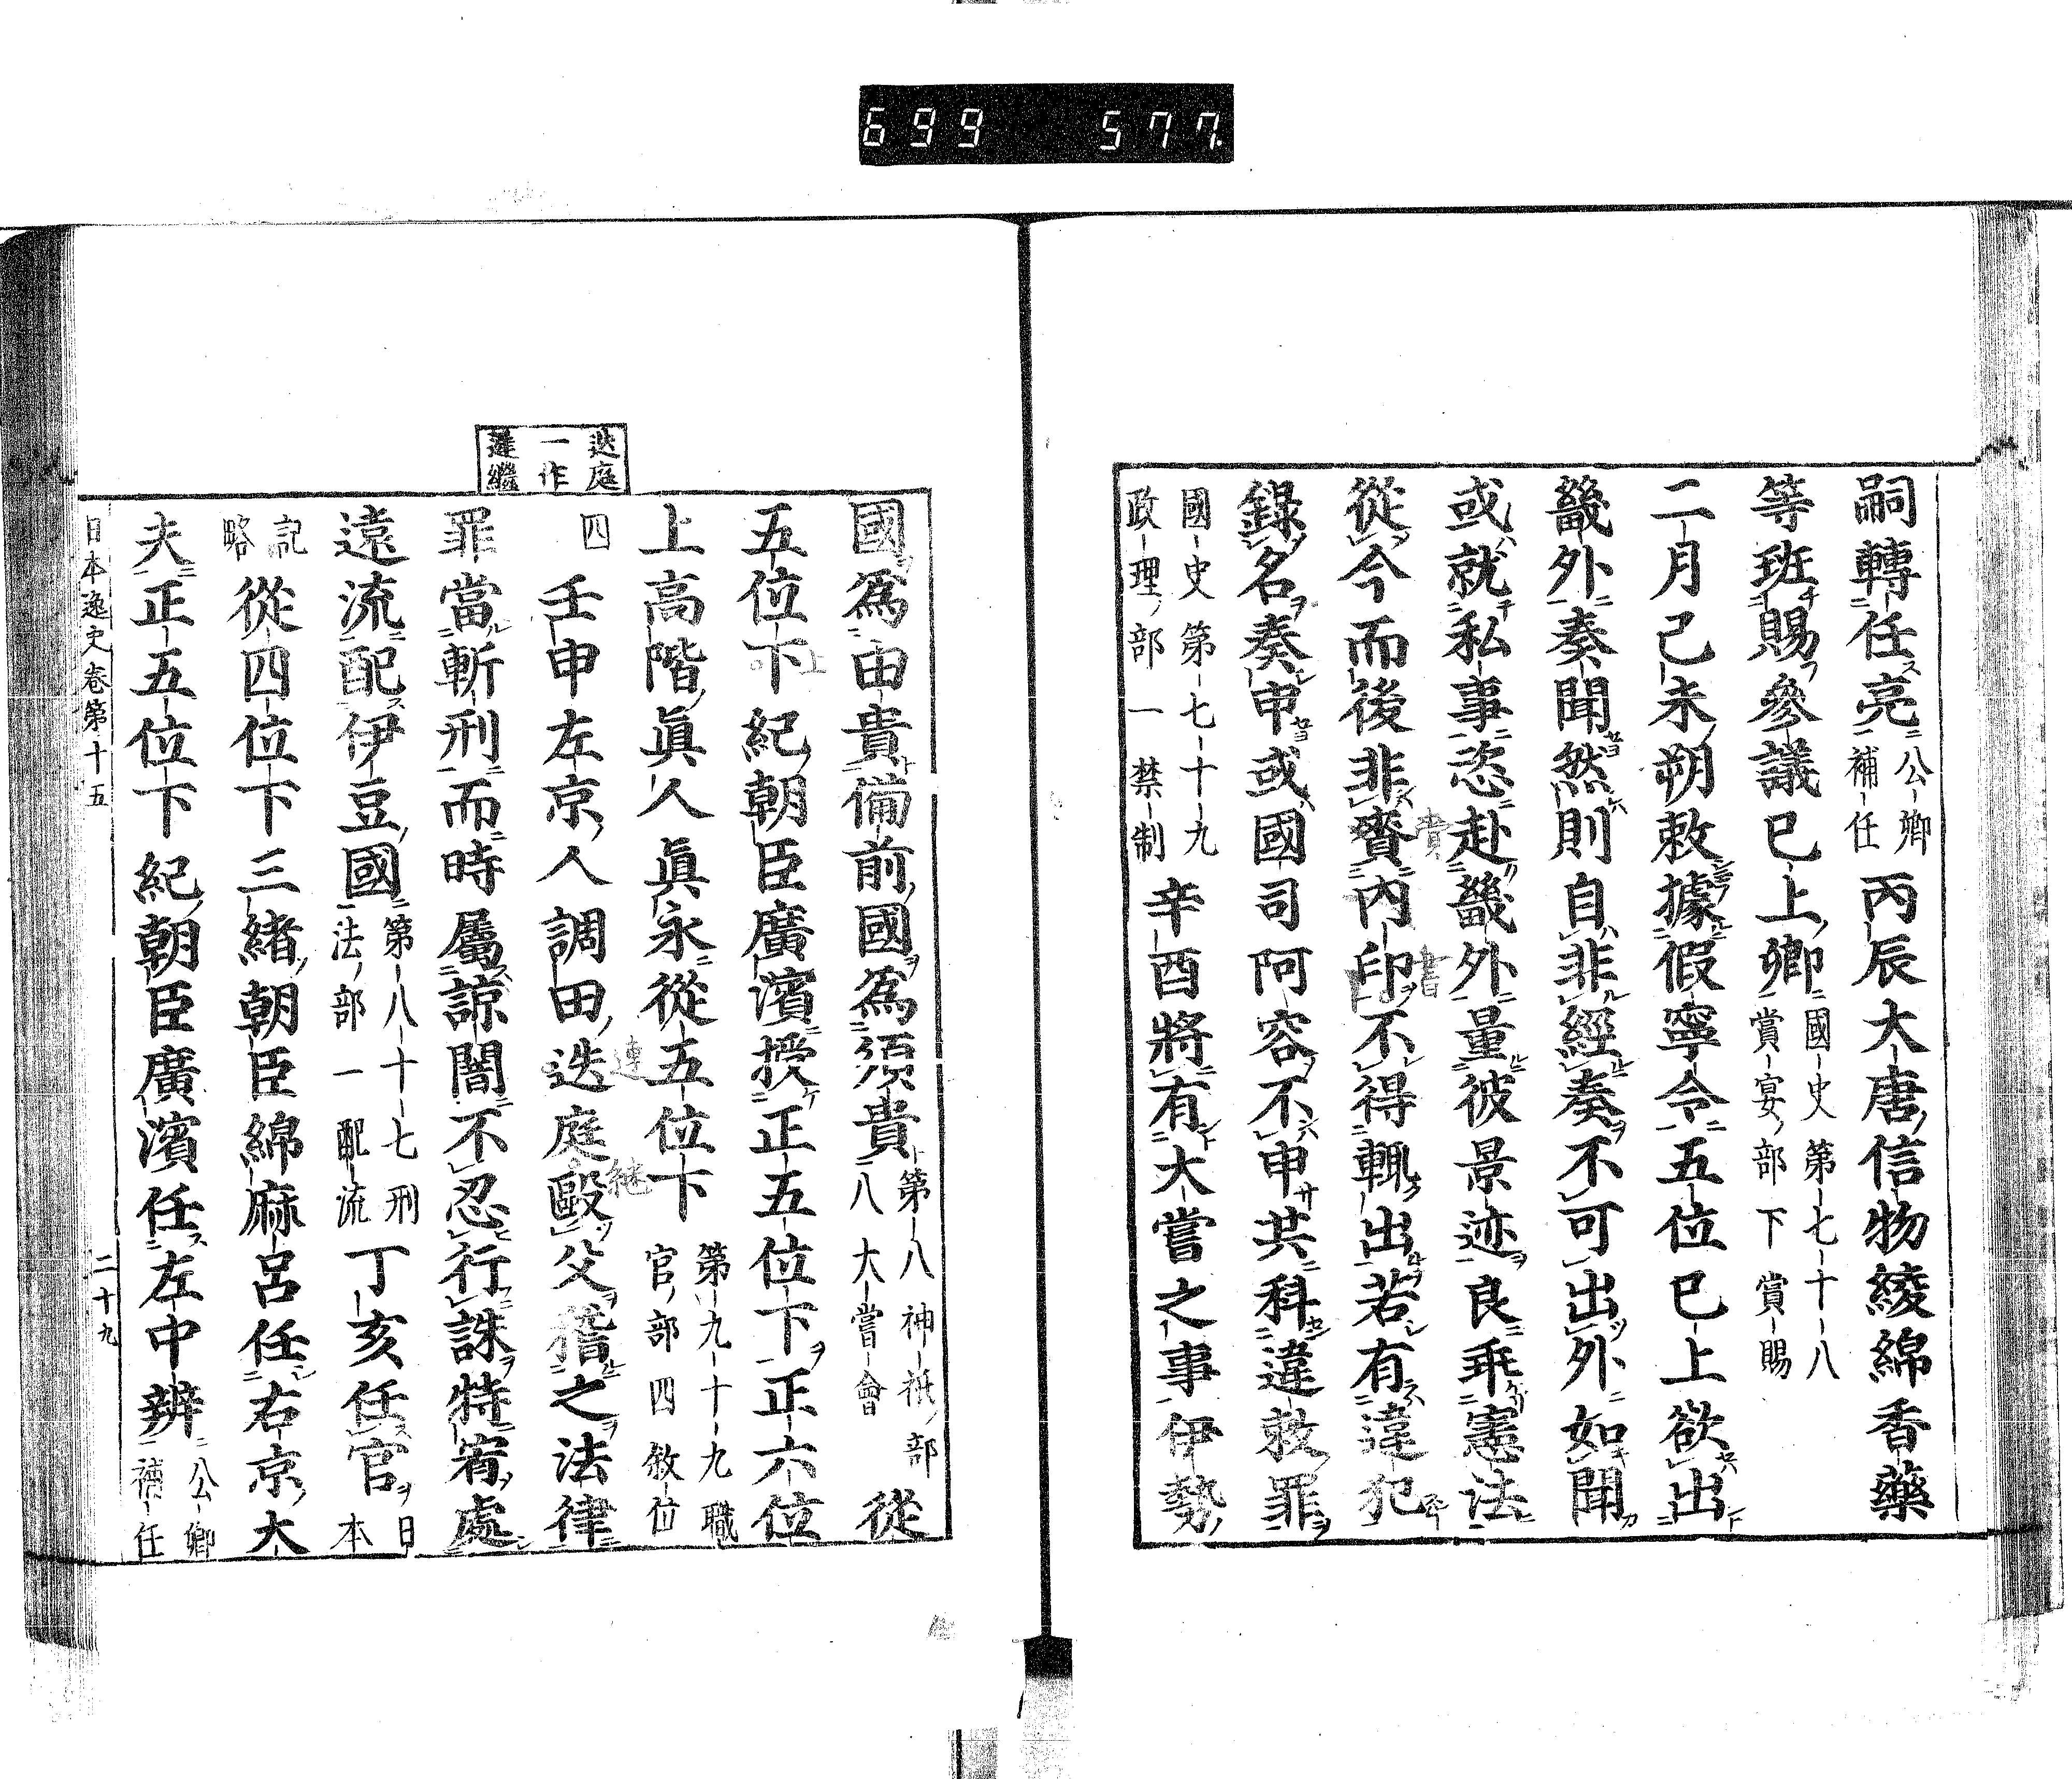 699 577
嗣轉任亮公卿補任丙辰大唐信物綾綿香藥
等班賜參議已上卿國史第七十八賞宴部下賞賜
二月己未朔敕據假寧令五位已上欲出
畿外奏聞然則自非經奏不可出外如聞
或就私事恣赴畿外量彼景迹良乖憲法
從今而後非賚內印不得輙出若有違犯
錄名奏申或國司阿容不申共科違敕罪
國史第七十九政理部一禁制辛酉將有大嘗之事伊勢
國爲由貴備前國爲須貴第八神祇部八大嘗會從
五位下紀朝臣廣濱授正五位下正六位
上高階眞人眞永從五位下第九十九職官部四敘位
四壬申左京人調田迭庭毆父稽之法律
罪當斬刑而時屬諒闇不忍行誅特宥處
遠流配伊豆國第八十七刑法部一配流丁亥任官日本
記略從四位下三緒朝臣綿麻呂任右京大
夫正五位下紀朝臣廣濱任左中辨公卿補任
日本逸史卷第十五 二十九
迭庭
一作
蓮繼
責
書
上
連
継